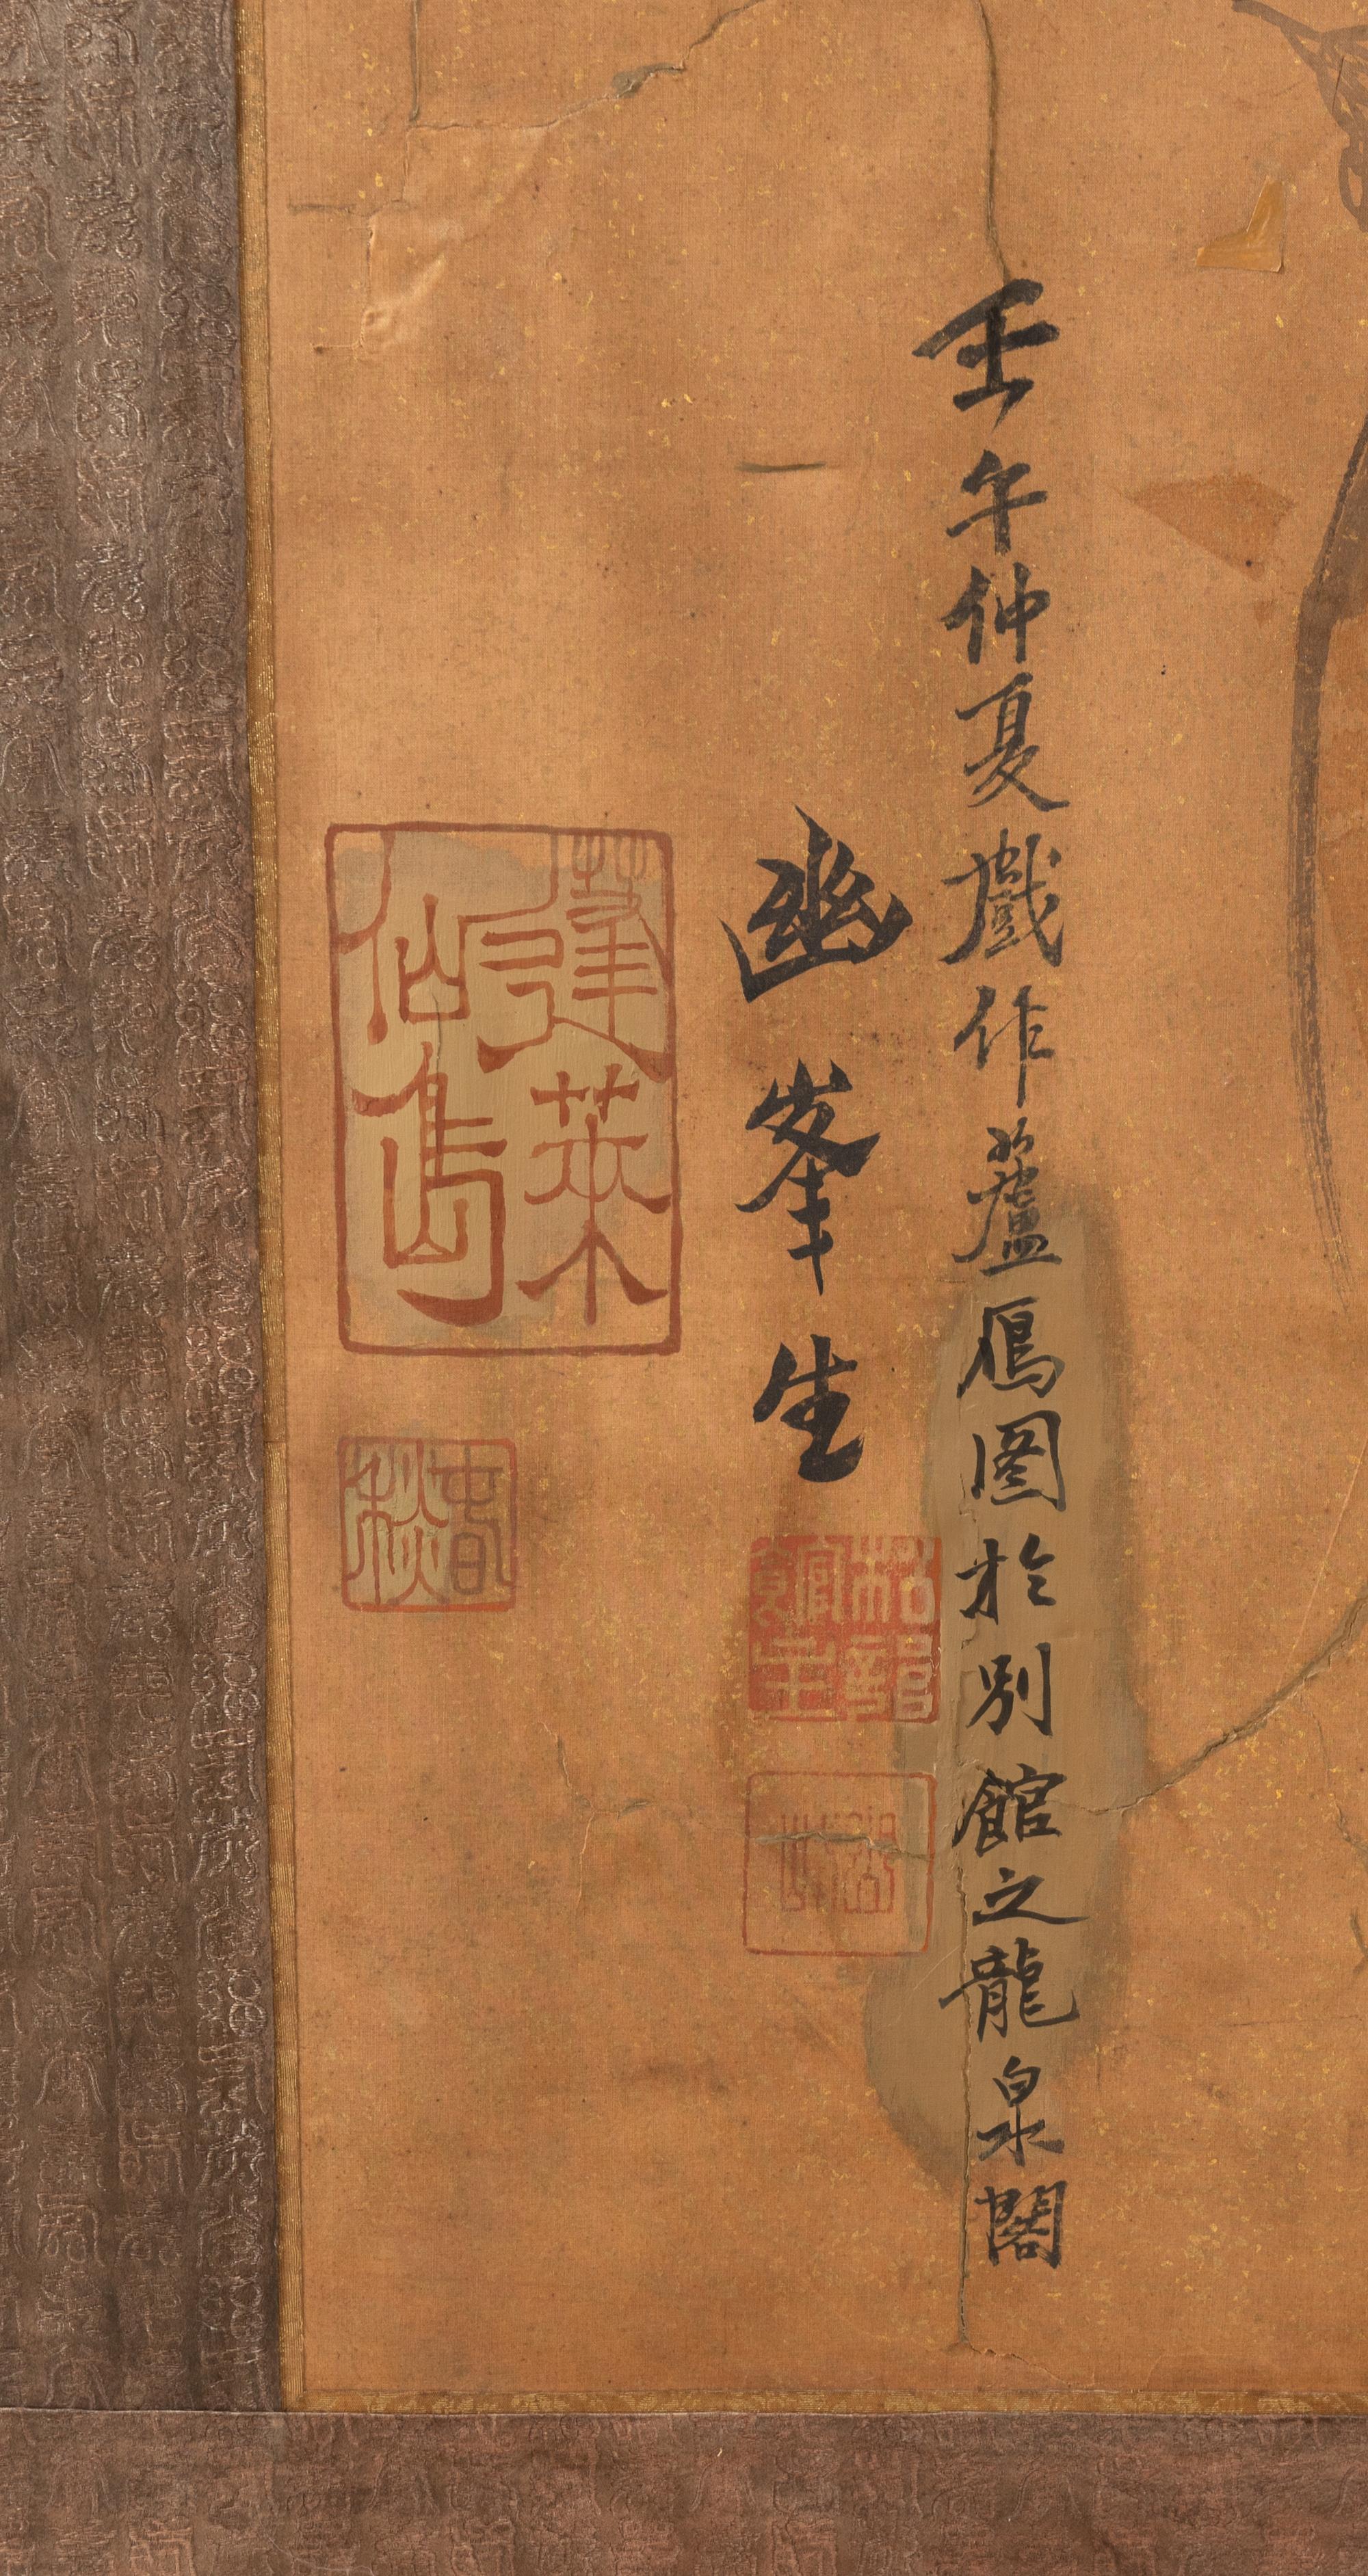 壬午仲夏戲作蘆鴈图於別館之龍泉閣
幽峯生
蓬萊仙島
春秋